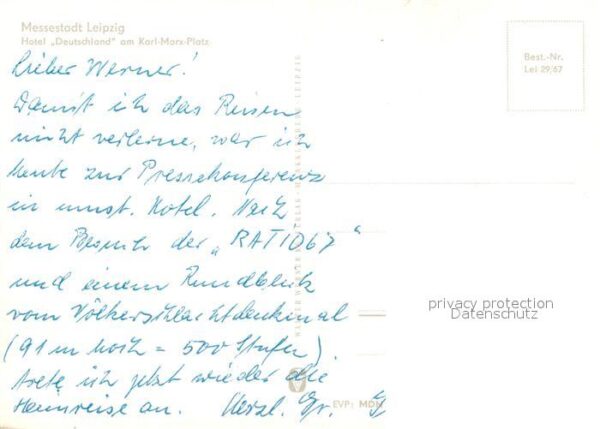 Messestadt Leipzig
Hotel „Deutschland" am Karl-Marx-Platz
Best.-Nr.
Lei 29/67
Lieber Werner!
Damit ich das Reisen
nicht verlerne, war ich
heute zur Pressekonferenz
in umst. Hotel. Nach
dem Besuch der „RATIO67"
und einem Rundblick
vom Völkerschlachtdenkmal
(91 m hoch = 500 Stufen).
trete ich jetzt wieder die
Heimreise an. Herzl. Gr. G
privacy protection
Datenschutz
EVP: MDN